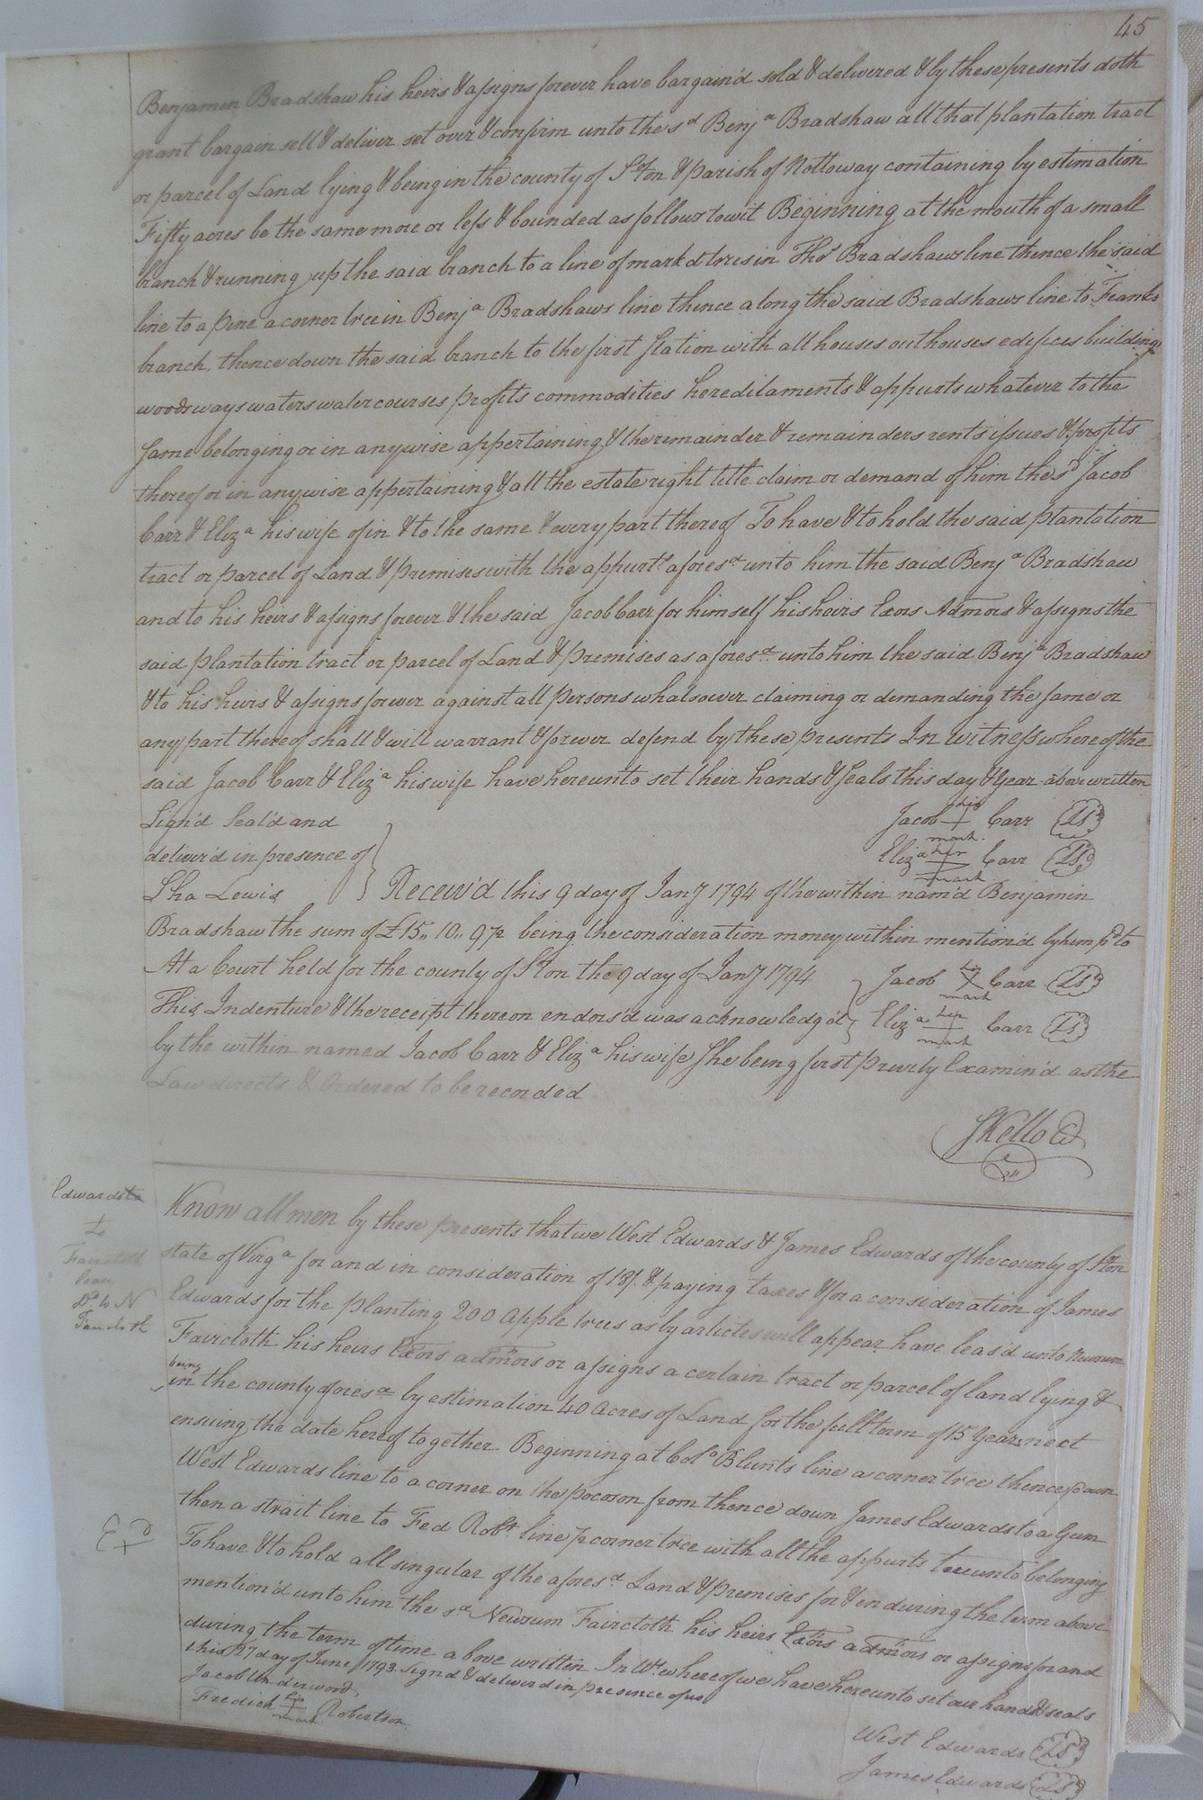 45
Benjamin Bradshaw his heirs & assigns forever have bargain'd sold & delivered & by these presents doth
grant bargain sell & deliver set over & confirm unto the sd Benja Bradshaw all that plantation tract
or parcel of Land lying & being in the county of Sºton & parish of Nottoway containing by estimation
Fifty acres be the same more or less & bounded as follows towit Beginning at the mouth of a small
branch & running up the said branch to a line of markd trees in Thos Bradshaws line thence the said
line to a pine a corner tree in Benja Bradshaws line thence along the said Bradshaws line to Franks
branch, thence down the said branch to the first station with all houses outhouses edifices buildings
woods ways waters watercourses profits commodities hereditaments & appurts whatever to the
same belonging or in anywise appertaining & the remainder & remainders rents issues & profits
thereof or in anywise appertaining & all the estate right title claim or demand of him the sd Jacob
Carr & Eliza his wife of in & to the same & every part thereof To have & to hold the said plantation
tract or parcel of Land & premises with the appurts aforesd unto him the said Benja Bradshaw
and to his heirs & assigns forever & the said Jacob Carr for himself his heirs Exors Admors & assigns the
said plantation tract or parcel of Land & premises as aforesd unto him the said Benja Bradshaw
& to his heirs & assigns forever against all persons whatsoever claiming or demanding the same or
any part thereof shall & will warrant & forever defend by these presents In witness whereof the
said Jacob Carr & Eliza his wife have hereunto set their hands & seals this day & year above written
Sign'd Seal'd and
deliver'd in presence of
Sha Lewis
Jacob his + mark Carr (Ls)
Eliza her + mark Carr (Ls)
Receiv'd this 9 day of Jany 1794 of the within nam'd Benjamin
Bradshaw the sum of £15,, 10,, 9½ being the consideration money within mention'd by him pd to
At a Court held for the county of Sºton the 9 day of Jany 1794
Jacob his X mark Carr (Ls)
This Indenture & the receipt thereon endors'd was acknowledg'd
Eliza her + mark Carr (Ls)
by the within named Jacob Carr & Eliza his wife She being first privily Examin'd as the
Law directs & Ordered to be recorded
SKello Cl
Edwards
to
Faircloth
Lease
Dd to N
Faircloth
Know all men by these presents that we West Edwards & James Edwards of the county of Sºton
state of Virga for and in consideration of & paying taxes & for a consideration of James
Edwards for the planting 200 Apple trees as by articles will appear have leas'd unto Newsum
Faircloth his heirs Exors admors or assigns a certain tract or parcel of land lying &
being
in the county aforesd by estimation 40 Acres of Land for the full term of 15 Years next
ensuing the date hereof together Beginning at Colo Blunts line a corner tree thence down
West Edwards line to a corner on the pocoson from thence down James Edwards to a Gum
then a strait line to Fed Robt line corner tree with all the appurts belonging
To have & to hold all singular of the aforesd Land & premises for & en during the term above
mention'd unto him the sd Newsum Faircloth his heirs Exors admors or assigns for and
during the term of time above written In Wts whereof we have hereunto set our hands & seals
this 27 day of June 1793 Signd & deliverd in presence of us
Jacob Underwood
Fredick his + mark Robertson
West Edwards (Ls)
James Edwards (Ls)